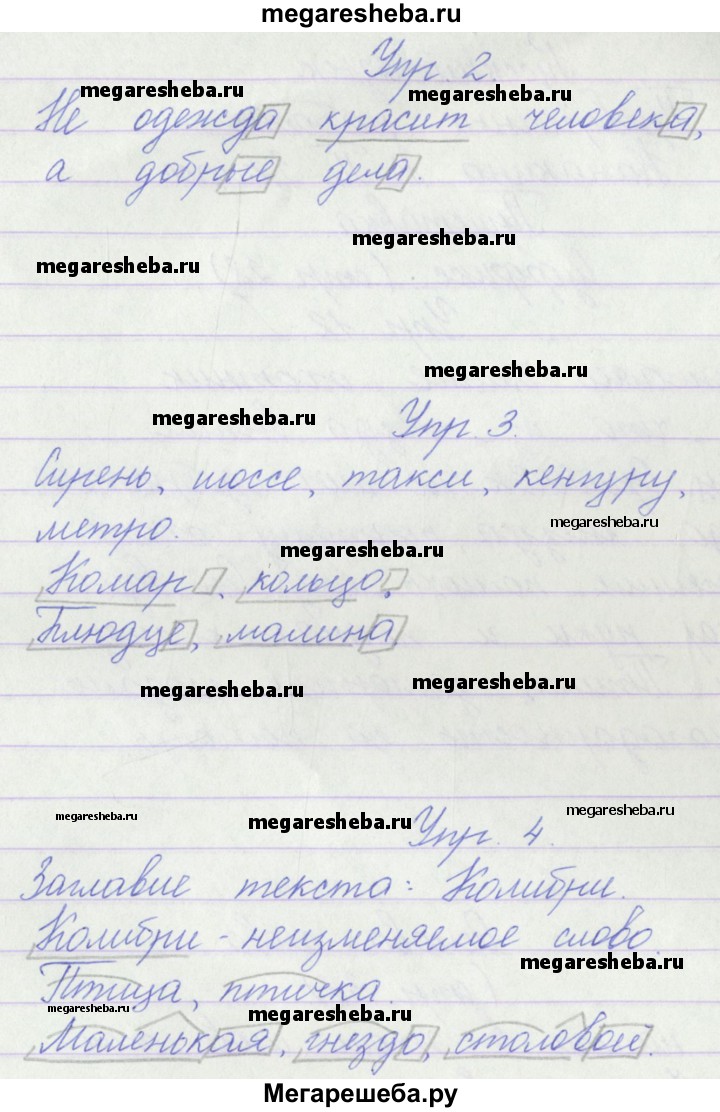 megaresheba.ru
Упр. 2.
megaresheba.ru
megaresheba.ru
Не одежда красит человека,
а добрые дела.
megaresheba.ru
megaresheba.ru
megaresheba.ru
megaresheba.ru
Упр. 3.
Сирень, шоссе, такси, кенгуру,
megaresheba.ru
метро.
megaresheba.ru
Комар, кольцо,
Блюдце, малина
megaresheba.ru
megaresheba.ru
megaresheba.ru
megaresheba.ru
megaresheba.ru
Упр. 4.
Заглавие текста: Колибри.
Колибри - неизменяемое слово.
megaresheba.ru
Птица, птичка.
megaresheba.ru
megaresheba.ru
Маленькая, гнездо, столовой.
Мегарешеба.ру